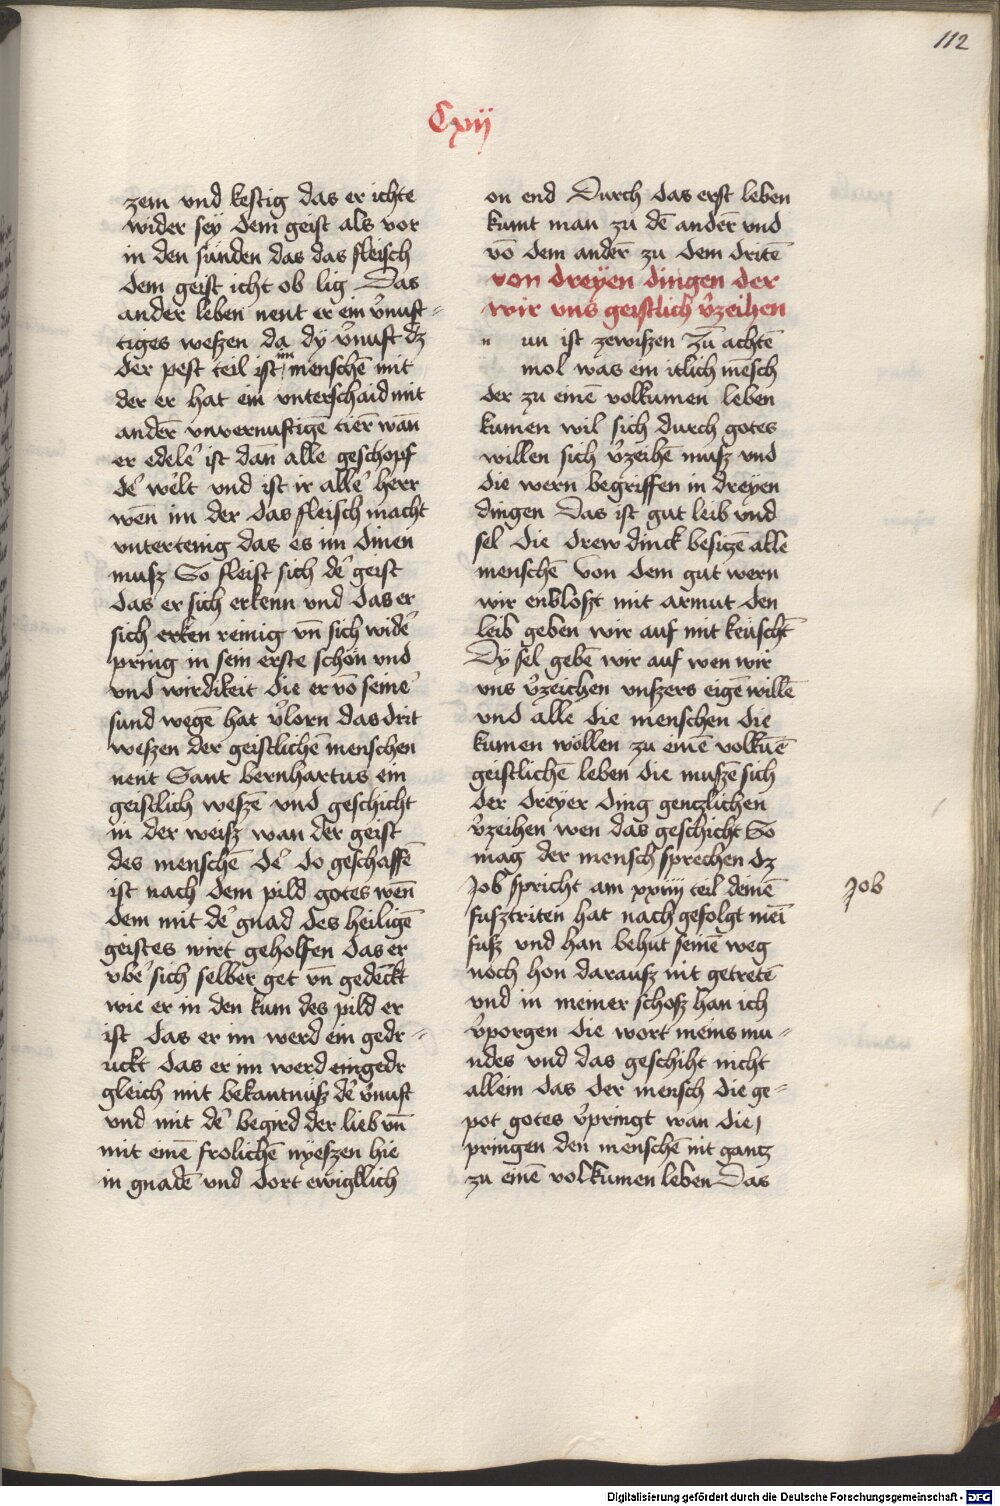 112
Cxij
zem vnd kestig das er ichte
wider sey dem geist als vor
in den sünden das das fleisch
dem geist icht ob lig Das
ander leben nent er ein v̄nuft=
tiges weszen da dy v̄nuft dz
der pest teil ist im menschē mit
der er hat ein vnterschaid mit
anderr̄ vnvernuftigē tierr̄ wān
er edelē ist dan̄ alle geschopf
dē welt vnd ist ir allē herr
wēn im der das fleisch macht
vntertenig das es im dinen
musz So fleist sich dē geist
das er sich erkenn vnd das er
sich erken reinig vn̄ sich widē
pring in sein erste schön vnd
vnd wirdikeit die er vō seinē
sund wegē hat v̄lorn das drit
weszen der geistlichē menschen
nent Sant bernhartus ein
geistlich weszē vnd geschicht
in der weisz wan der geist
des menschē dē do geschaffē
ist nach dem pild gotes wēn
dem mit dē gnad des heiligē
geistes wirt geholfen das er
vbē sich selber get vn̄ gedēckt
wie er in den kum des pild er
ist das er im werd ein gedr=
uckt das er im werd eingedr
gleich mit bekantnüsz dē v̄nuft
vnd mit dē begird der lieb vn̄
mit einē frolichē nyeszen hie
in gnadē vnd dort ewigllich
on end Durch das erst leben
kumt man zu dē anderr̄ vnd
vō dem anderr̄ zu dem dritē
von dreyen dingen der
wir vns geistlich v̄zeihen
n un ist zewiszen Zu achtē
mol was ein itlich mēsch
der zu einē volkumen leben
kumen wil sich durch gotes
willen sich v̄zeihē musz vnd
die wern begriffen in dreyen
dingen Das ist gut leib vnd
sel die drew dinck besiczē alle
menschē Von dem gut wern
wir enbloszt mit armut den
leib geben wir auf mit keuscht̄
Dy sel gebē wir auf wen wir
vns v̄zeichen vnszers eigē willē
vnd alle die menschen die
kumen wöllen zu einē volkūē
geistlichē leben die muszē sich
der dreyer ding genczlichen
v̄zeihen wen das geschicht So
mag der mensch sprechen dz
Job spricht am xxiiij teil deinē
fusztriten hat nach gefolgt mei̅
fusz vnd han behut seinē weg
noch hon darausz nit getretē
vnd in meiner schosz han ich
v̄porgen die wort meins mu=
ndes vnd das geschiht nicht
allein das der mensch die ge=
pot gotes v̄pringt wan die
pringen den menschē nit gancz
zu einē volkumen leben Das
Job
Digitalisierung gefördert durch die Deutsche Forschungsgemeinschaft - DFG